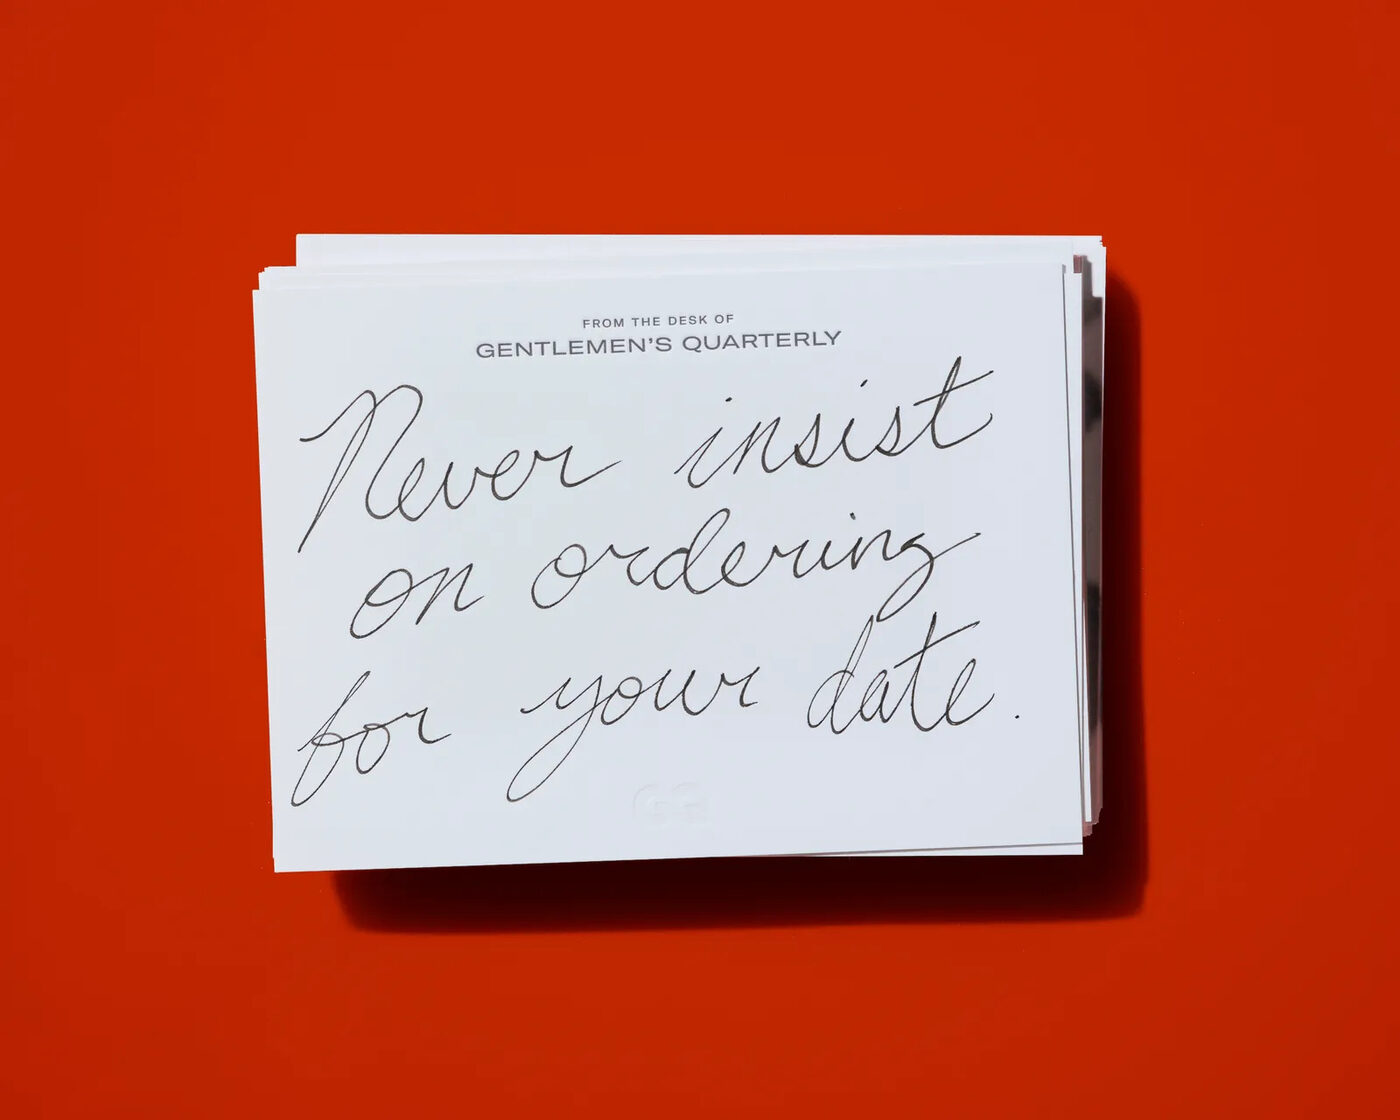 FROM THE DESK OF
GENTLEMEN'S QUARTERLY
Never insist
on ordering
for your date.
GQ